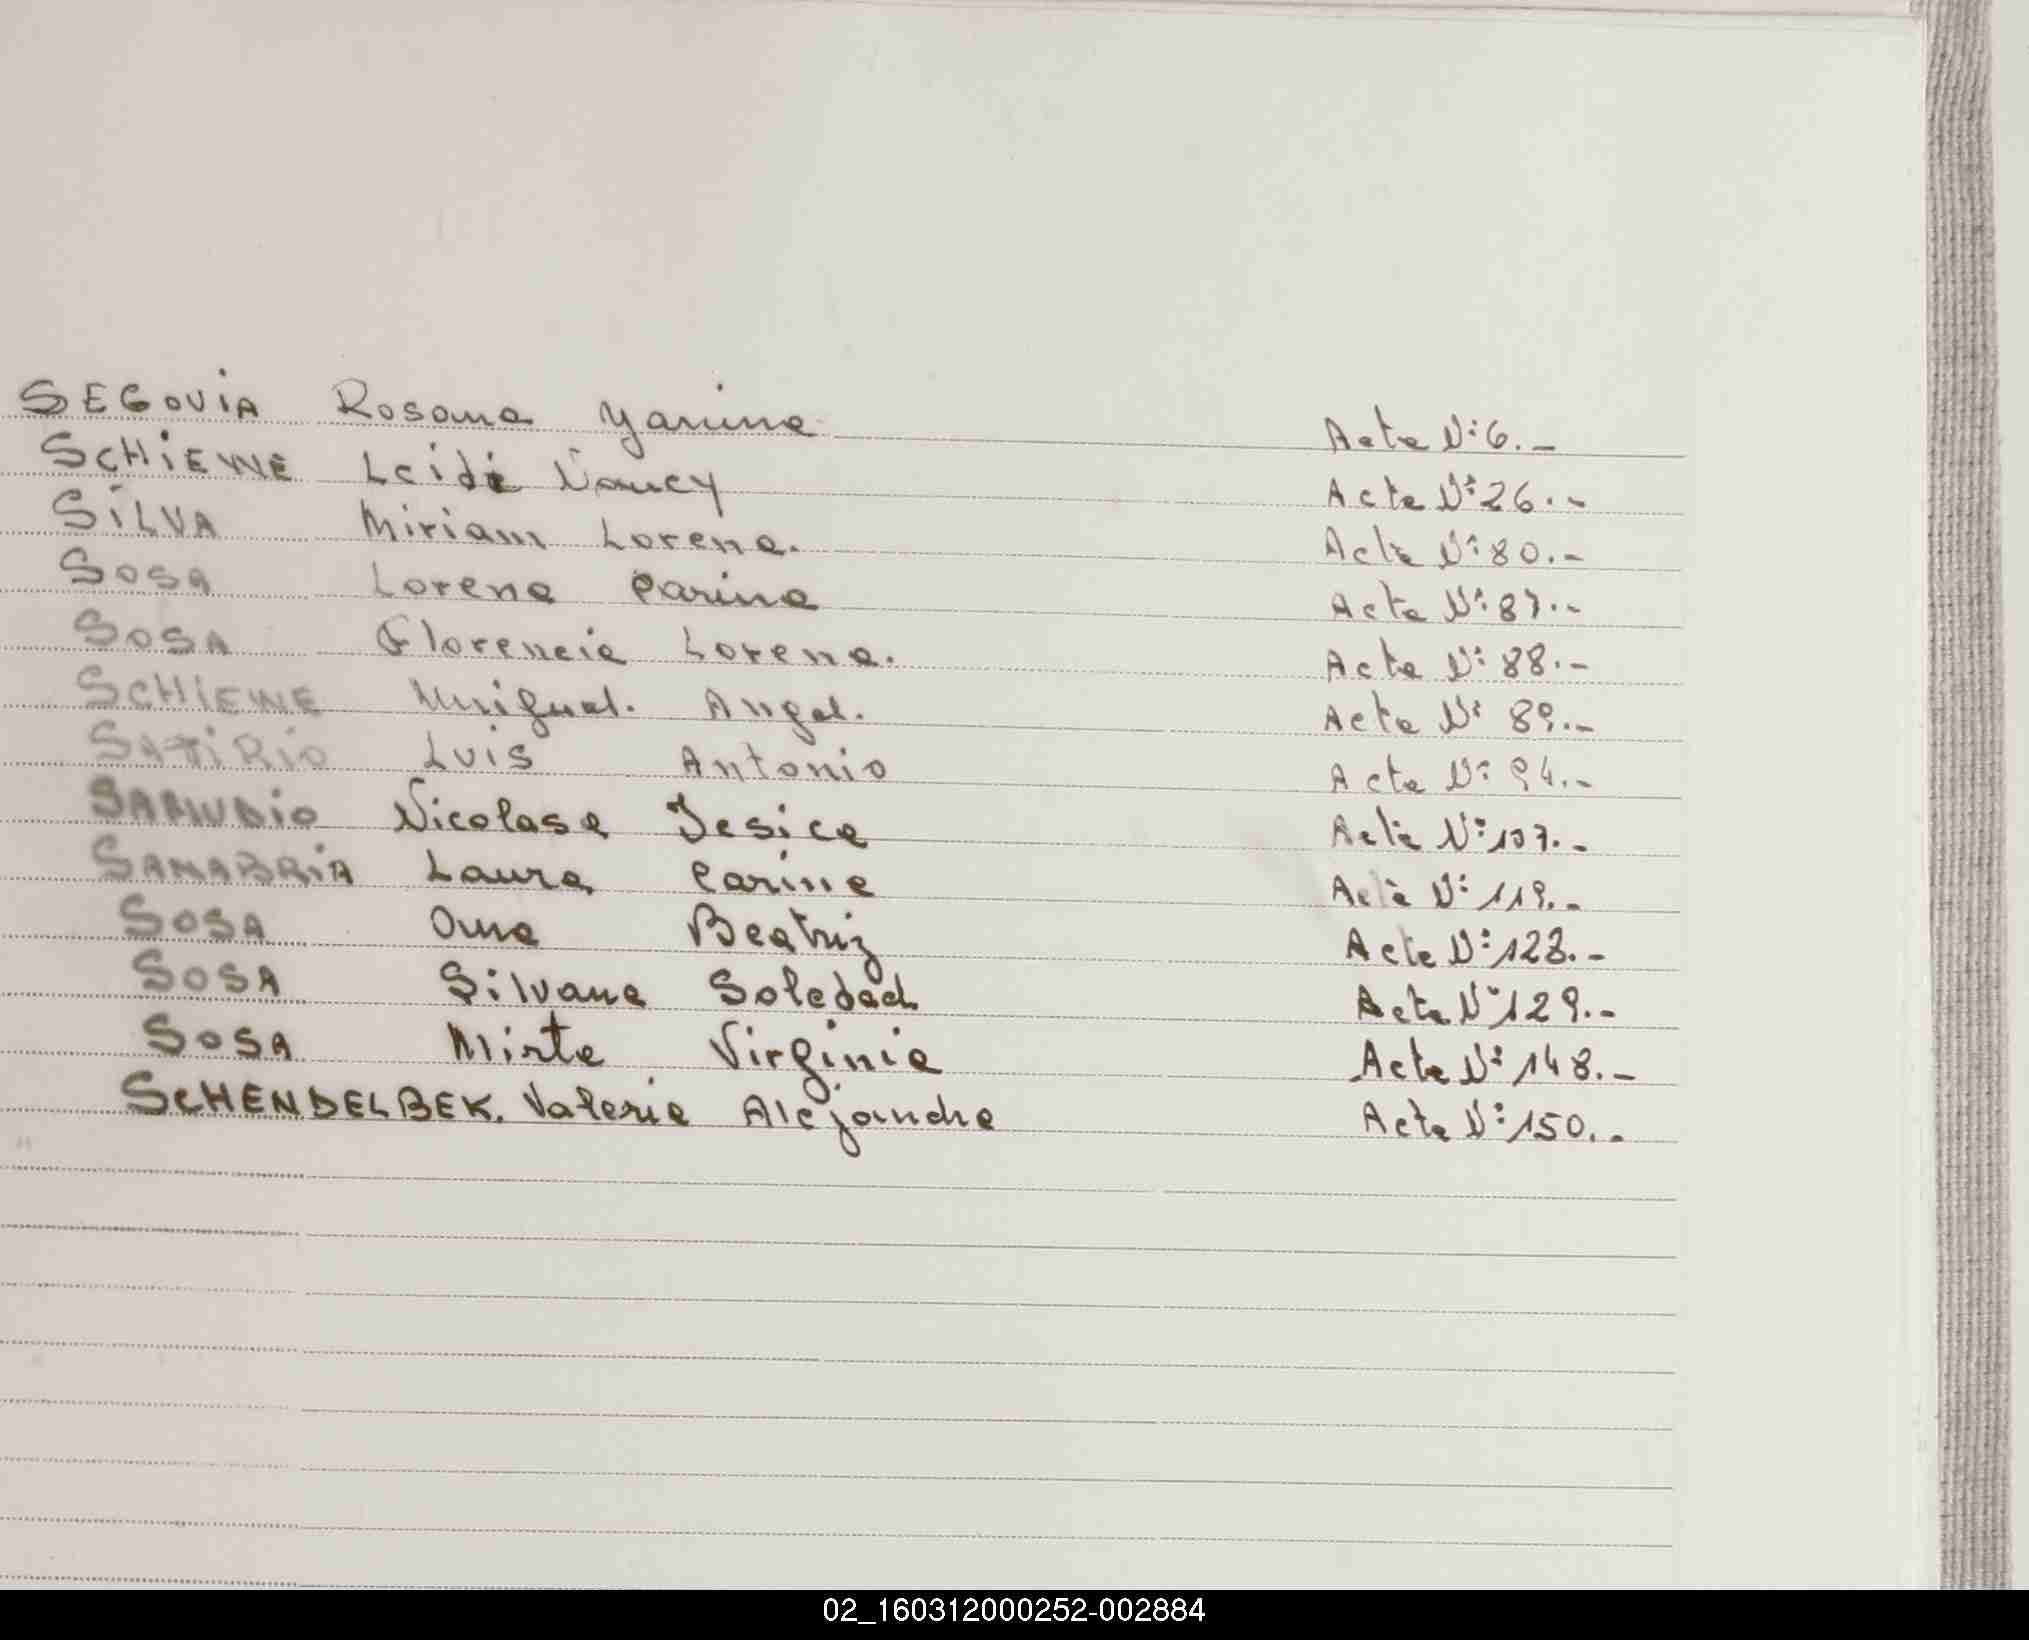 SEGOVIA Rosana Yanina Acta Nº 6.-
SCHIEWE Leidi Nancy Acta Nº 26.-
SILVA Miriam Lorena. Acta Nº 80.-
SOSA Lorena Carina Acta Nº 87.-
SOSA Florencia Lorena. Acta Nº 88.-
SCHIEWE Angel. Acta Nº 89.-
SATIRIO Luis Antonio Acta Nº 94.-
Nicolasa Jesica Acta Nº 107.-
SANABRIA Laura Carina Acta Nº 119.-
SOSA Ana Beatriz Acta Nº 128.-
SOSA Silvana Soledad Acta Nº 129.-
SOSA Mirta Virginia Acta Nº 148.-
SCHENDELBEK. Valeria Alejandra Acta Nº 150.-
02_160312000252-002884